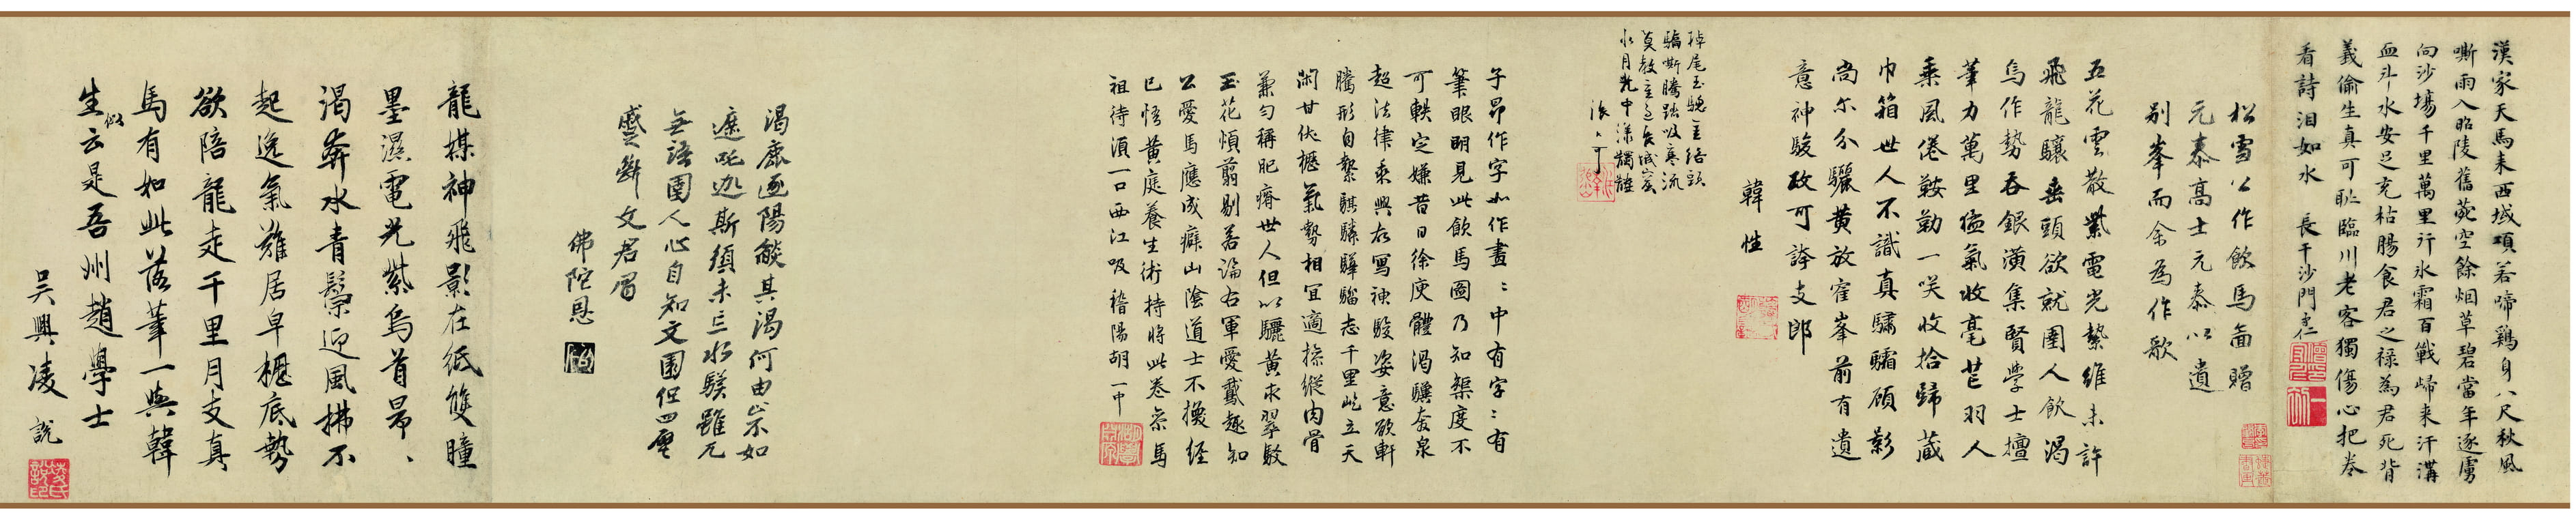 漢家天馬来西域項若啼鷄身八尺秋風
嘶雨入昭陵舊蒐空餘烟草碧當年逐虜
向沙場千里萬里行氷霜百戰歸来汗溝
血斗水安足充枯腸食君之禄為君死背
義偷生真可恥臨川老客獨傷心把卷
看詩泪如水 長干沙門
松雪公作飲馬畐贈
元泰高士元泰以遺
别峯而余為作歌
五花雲散紫電光縶維未許
飛龍驤垂頭欲就圉人飲渴
烏作勢吞銀潢集賢學士擅
筆力萬里猛氣收毫芒羽人
乗風倦鞍勒一笑收拾歸藏
巾箱世人不識真驌驦顧影
尚尔分驪黄放隺峯前有遺
意神駿政可誇支郎
韓性
掉尾玉騘主絡頭
驕嘶騰踏吸寒流
莫教立近長城窟
水月光中漾髑髏
子昂作字如作畫:中有字:有
筆眼明見此飲馬圖乃知榘度不
可軼定嫌昔日徐庾體渴驥奔泉
超法律乘興為寫神駿姿意欲軒
騰形自縶騏驎驊騮志千里屹立天
閑甘伏櫪氣勢相宜適操縱肉骨
兼勻稱肥瘠世人但以驪黄求翠駮
玉花煩翦剔若論右軍愛鵞趣知
公愛馬應成癖山陰道士不換經
已悟黄庭養生術持將此卷参馬
祖待須一口西江吸 稽陽胡一中
渴鹿逐陽燄其渴何由歇如
遮吡迦斯須未忘水騃雖元
無語圉人心自知文園但四壁
愛斷文君眉
佛陀恩
龍媒神飛影在紙雙瞳
墨濕電光紫烏首昂、
渴奔水青鬃迎風拂不
起逸氣難居皁櫪底勢
欲陪龍走千里月支真
馬有如此落筆一與韓
生似云是吾州趙學士
吳興凌說